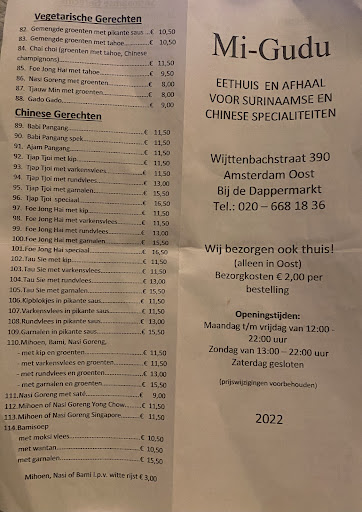 Vegetarische Gerechten
82. Gemengde groenten met pikante saus ...€ 10,50
83. Gemengde groenten met tahoe...€ 10,50
84. Chai choi (groenten met tahoe, Chinese
champignons)...€ 11,50
85. Foe Jong Hai met tahoe...€ 9,50
86. Nasi Goreng met groenten...€ 8,00
87. Tjauw Min met groenten...€ 8,00
88. Gado Gado...€ 9,00
Chinese Gerechten
89. Babi Pangang...€ 11,50
90. Babi Pangang spek...€ 11,50
91. Ajam Pangang...€ 11,50
92. Tjap Tjoi met kip...€ 11,50
93. Tjap Tjoi met varkensvlees...€ 11,50
94. Tjap Tjoi met rundvlees...€ 13,00
95. Tjap Tjoi met garnalen...€ 15,50
96. Tjap Tjoi speciaal...€ 16,50
97. Foe Jong Hai met kip...€ 11,50
98. Foe Jong Hai met varkensvlees...€ 11,50
99. Foe Jong Hai met rundvlees...€ 13,00
100.Foe Jong Hai met garnalen...€ 15,50
101.Foe Jong Hai speciaal...€ 16,50
102.Tau Sie met kip...€ 11,50
103.Tau Sie met varkensvlees...€ 11,50
104.Tau Sie met rundvlees...€ 13,00
105.Tau Sie met garnalen...€ 15,50
106.Kipblokjes in pikante saus...€ 11,50
107.Varkensvlees in pikante saus...€ 11,50
108.Rundvlees in pikante saus...€ 13,00
109.Garnalen in pikante saus...€ 15,50
110.Mihoen, Bami, Nasi Goreng,
- met kip en groenten...€ 11,50
- met varkensvlees en groenten...€ 11,50
- met rundvlees en groenten...€ 13,00
- met garnalen en groenten...€ 15,50
111.Nasi Goreng met saté...€ 9,00
112.Mihoen of Nasi Goreng Yong Chow...€ 11,50
113.Mihoen of Nasi Goreng Singapore...€ 11,50
114.Bamisoep
met moksi vlees...€ 10,50
met wantan...€ 10,50
met garnalen...€ 15,50
Mihoen, Nasi of Bami i.p.v. witte rijst € 3,00
Mi-Gudu
EETHUIS EN AFHAAL
VOOR SURINAAMSE EN
CHINESE SPECIALITEITEN
Wijttenbachstraat 390
Amsterdam Oost
Bij de Dappermarkt
Tel.: 020 – 668 18 36
Wij bezorgen ook thuis!
(alleen in Oost)
Bezorgkosten € 2,00 per
bestelling
Openingstijden:
Maandag t/m vrijdag van 12:00 -
22:00 uur
Zondag van 13:00 – 22:00 uur
Zaterdag gesloten
(prijswijzigingen voorbehouden)
2022